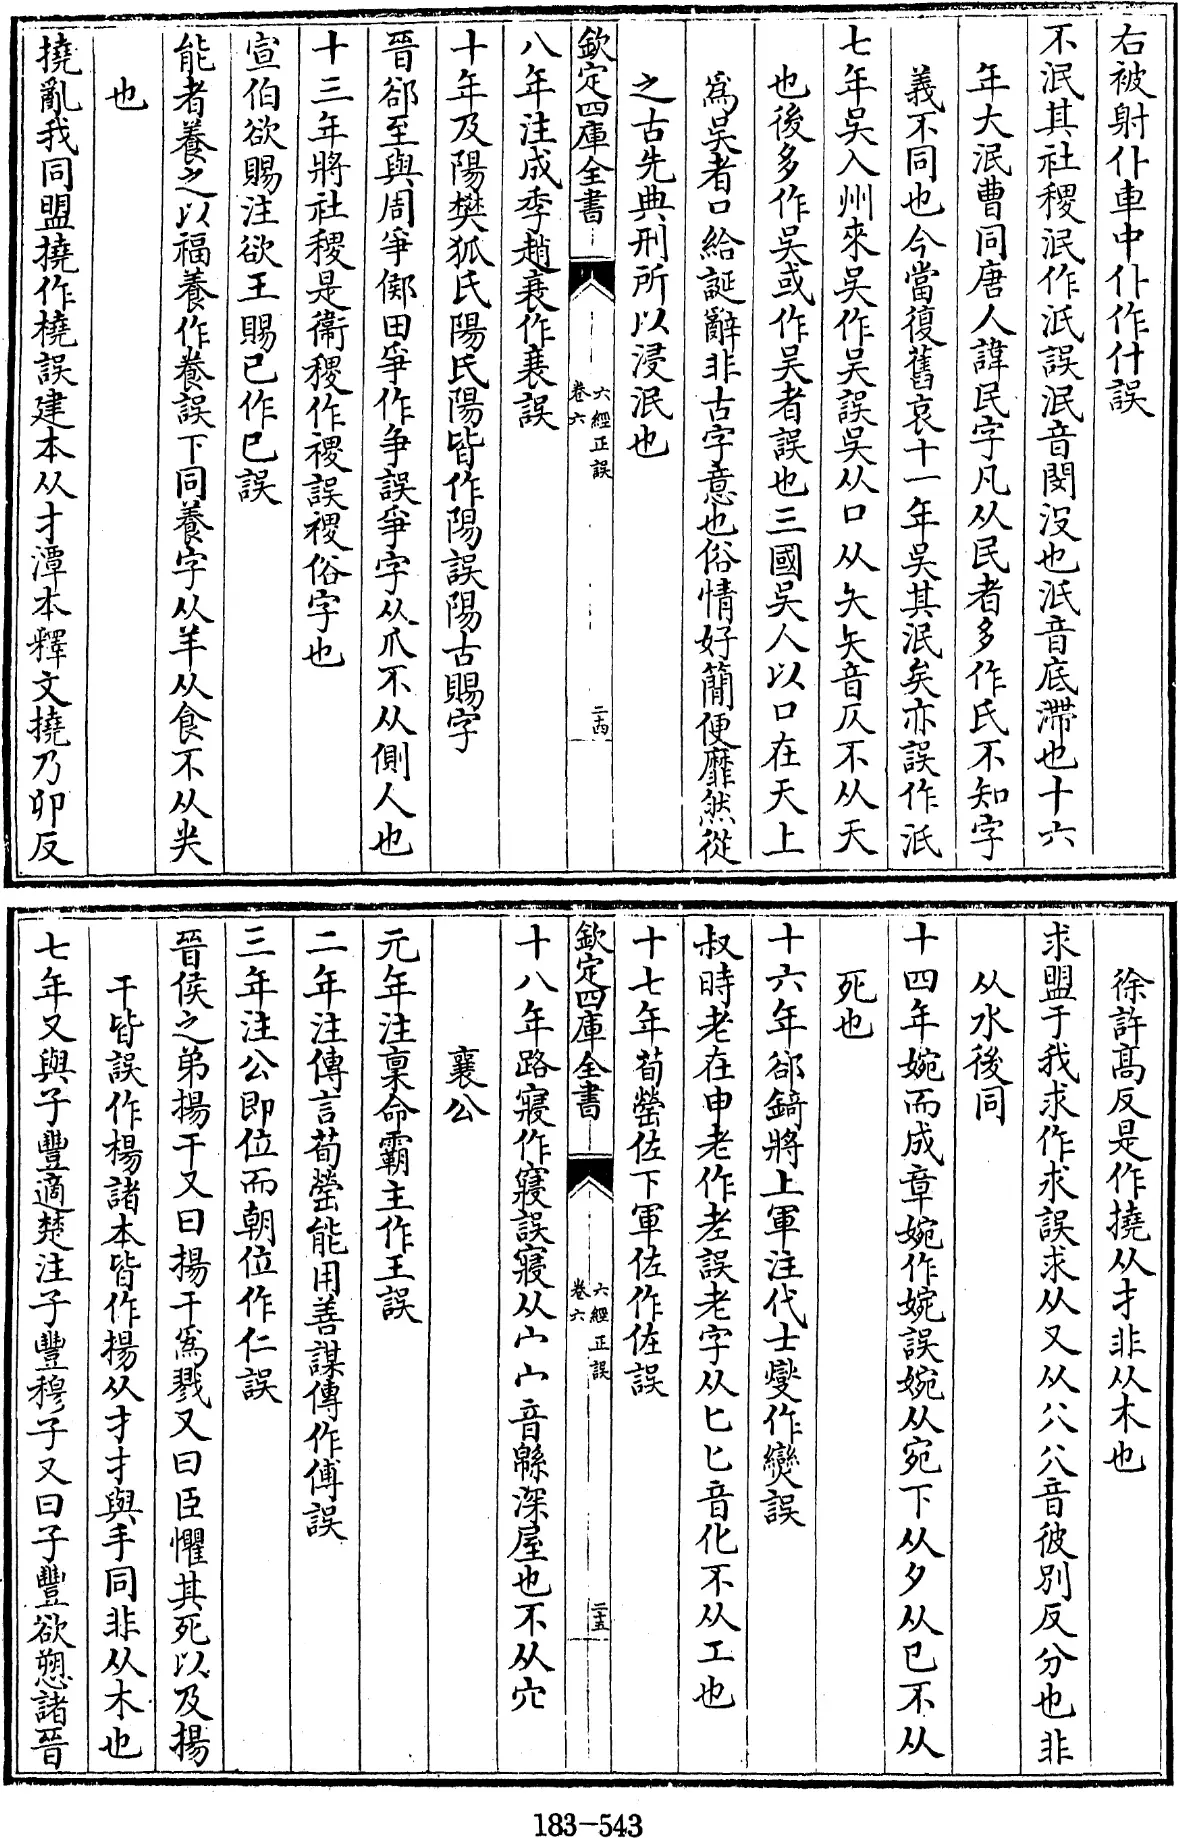 右被射仆車中仆作什誤
不泯其社稷泯作泜誤泯音閔沒也泜音底滯也十六
年大泯曹同唐人諱民字凡从民者多作氏不知字
義不同也今當復舊哀十一年吳其泯矣亦誤作泜
七年吳入州來吳作吴誤吳从口从夨夨音仄不从天
也後多作吳或作吴者誤也三國吳人以口在天上
為吴者口給誕辭非古字意也俗情好簡便靡然從
之古先典刑所以浸泯也
欽定四庫全書
六經正誤
卷六
二十四
八年注成季趙衰作衰誤
十年及陽樊狐氏陽氏陽皆作陽誤陽古賜字
晉郤至與周爭鄇田爭作争誤爭字从爪不从側人也
十三年將社稷是衛稷作禝誤禝俗字也
宣伯欲賜注欲王賜己作已誤
能者養之以福養作養誤下同養字从羊从食不从𢍏
也
撓亂我同盟撓作橈誤建本从才潭本釋文撓乃卯反
徐許髙反是作撓从才非从木也
求盟于我求作求誤求从又从八八音彼別反分也非
从水後同
十四年婉而成章婉作婉誤婉从宛下从夕从㔾不从
死也
十六年郤錡將上軍注代士燮作變誤
叔時老在申老作耂誤老字从匕匕音化不从工也
十七年荀罃佐下軍佐作佐誤
欽定四庫全書
六經正誤
卷六
二十五
十八年路寢作寢誤寢从宀宀音緜深屋也不从穴
襄公
元年注稟命霸主作王誤
二年注傳言荀罃能用善謀傳作傅誤
三年注公即位而朝位作仁誤
晉侯之弟揚干又曰揚干為戮又曰臣懼其死以及揚
干皆誤作楊諸本皆作揚从才才與手同非从木也
七年又與子豐適楚注子豐穆子又曰子豐欲愬諸晉
183-543